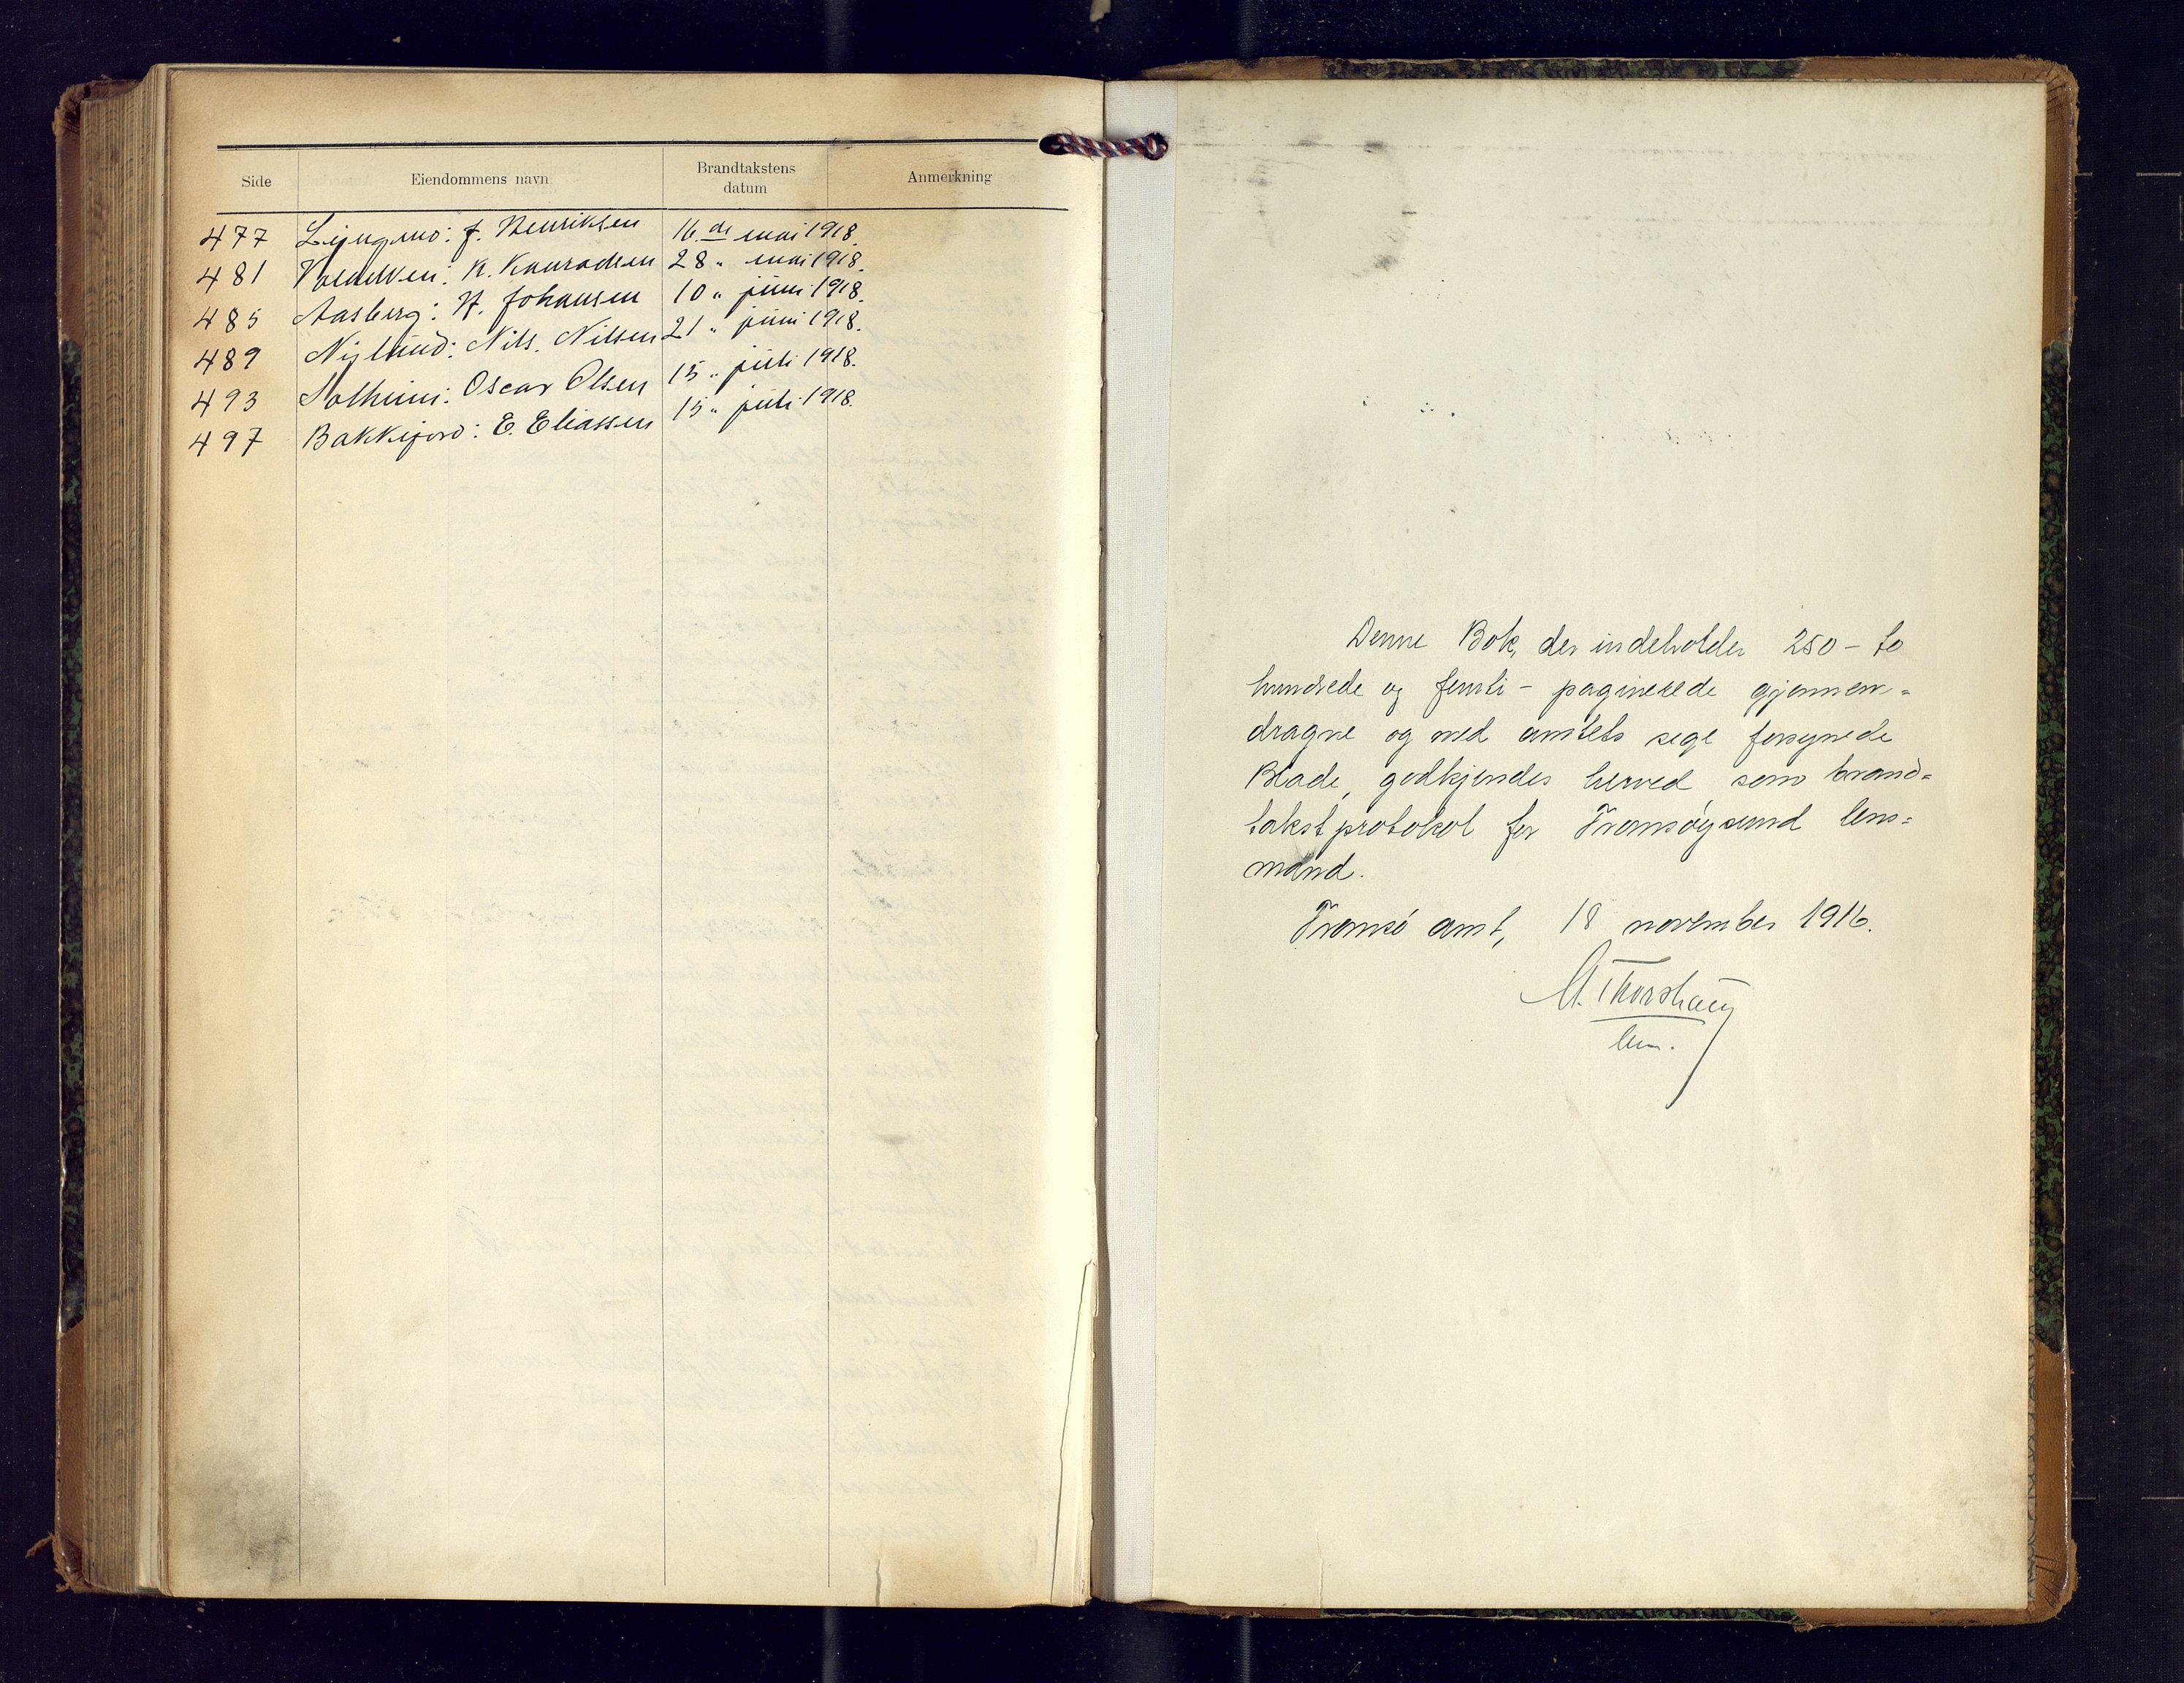 Side Eiendommens navn Brandtakstens datum Anmerkning
477 J. Henriksen 16.de mai 1918.
481 K. Konradsen 28 " mai 1918.
485 Aasberg: H. Johansen 10 " juni 1918.
489 Nylund: Nils. Nilsen 21 " juni 1918.
493 Solheim: Oscar Olsen 15 " juli 1918.
497 Bakkejord: E. Eliassen 15 " juli 1918.
Denne Bok, der indeholder 250 – to
hundrede og femti – paginerede gjennem=
dragne og med amtets segl forsynede
Blade, godkjendes herved som brand=
takstprotokol for Tromsøysund lens=
mand.
Tromsö amt, 18 november 1916.
Thorshaug